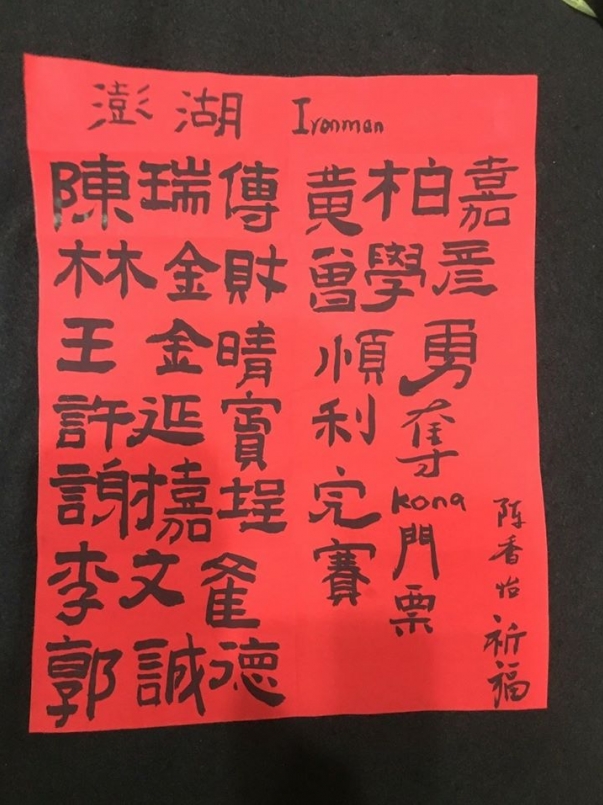 澎湖 Ironman
陳瑞傳
林金財
王金晴
許延賓
謝嘉埕
李文隺
郭誠德
黃柏嘉
曾學彥
順利完賽
勇奪kona門票
陈香怡祈福